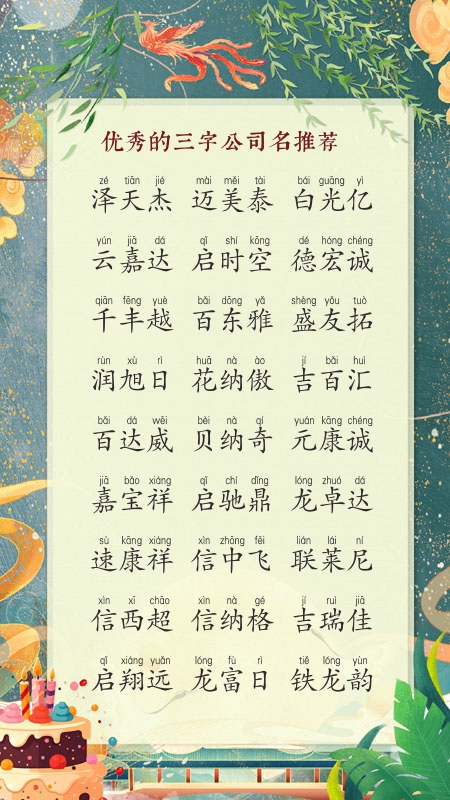 优秀的三字公司名推荐
zé tiān jié mài měi tài bái guāng yì
泽天杰 迈美泰 白光亿
yún jiā dá qǐ shí kōng dé hóng chéng
云嘉达 启时空 德宏诚
qiān fēng yuè bǎi dōng yǎ shèng yǒu tuò
千丰越 百东雅 盛友拓
rùn xù rì huā nà ào jí bǎi huì
润旭日 花纳傲 吉百汇
bǎi dá wēi bèi nà qí yuán kāng chéng
百达威 贝纳奇 元康诚
jiā bǎo xiáng qǐ chí dǐng lóng zhuó dá
嘉宝祥 启驰鼎 龙卓达
sù kāng xiáng xìn zhōng fēi lián lái ní
速康祥 信中飞 联莱尼
xìn xī chāo xìn nà gé jí ruì jiā
信西超 信纳格 吉瑞佳
qǐ xiáng yuǎn lóng fù rì tiě lóng yùn
启翔远 龙富日 铁龙韵